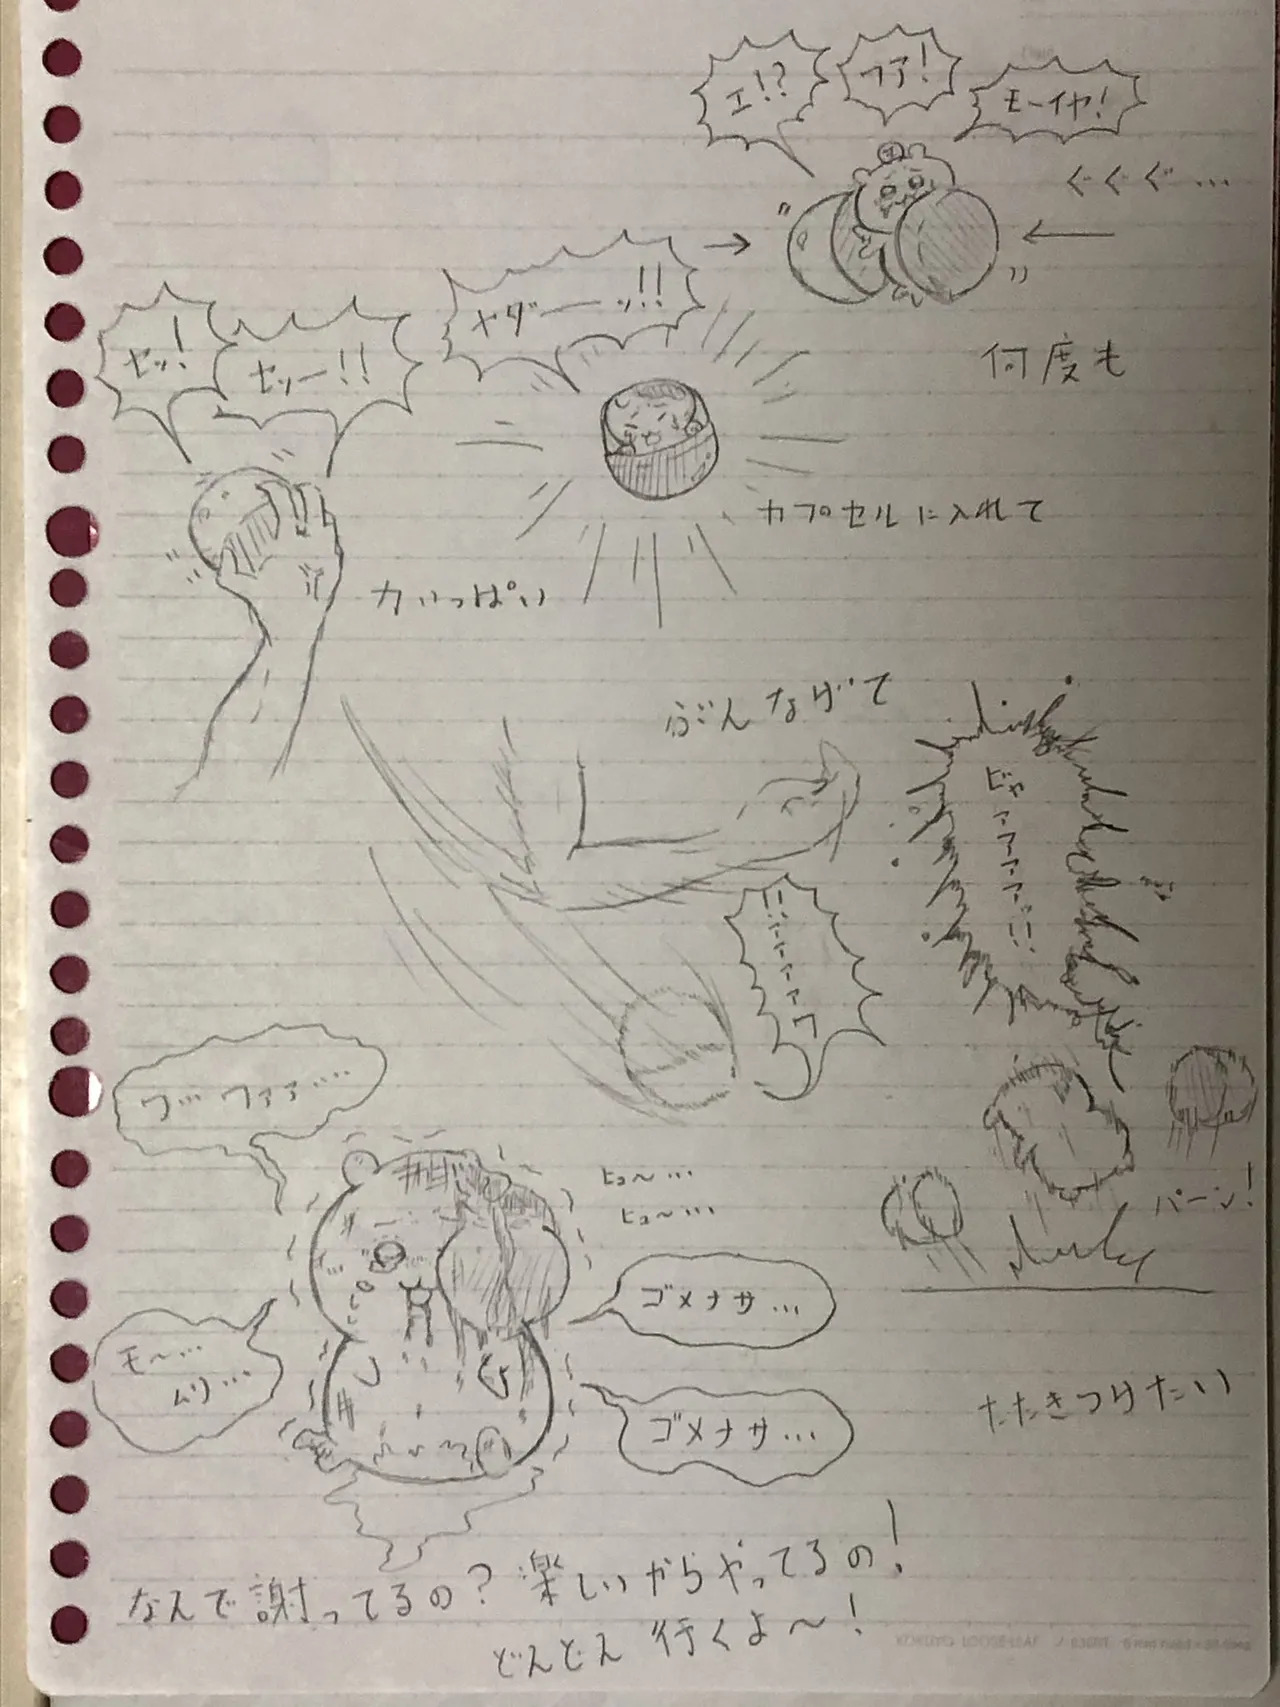 エ!?
ファ!
モーイヤ!
ぐぐぐ…
何度も
ヤダーーッ!!
カプセルに入れて
セッ!
セッー!!
力いっぱい
ぶんなげて
ワァァァァ!!
ビャァァァァッ!!
パーン!
たたきつけたい
ワ… ワァァ…
ヒュ〜…
ヒュ〜…
ゴメナサ…
モ〜…
ムリ…
ゴメナサ…
なんで謝ってるの?楽しいからやってるの!
どんどん行くよ〜!